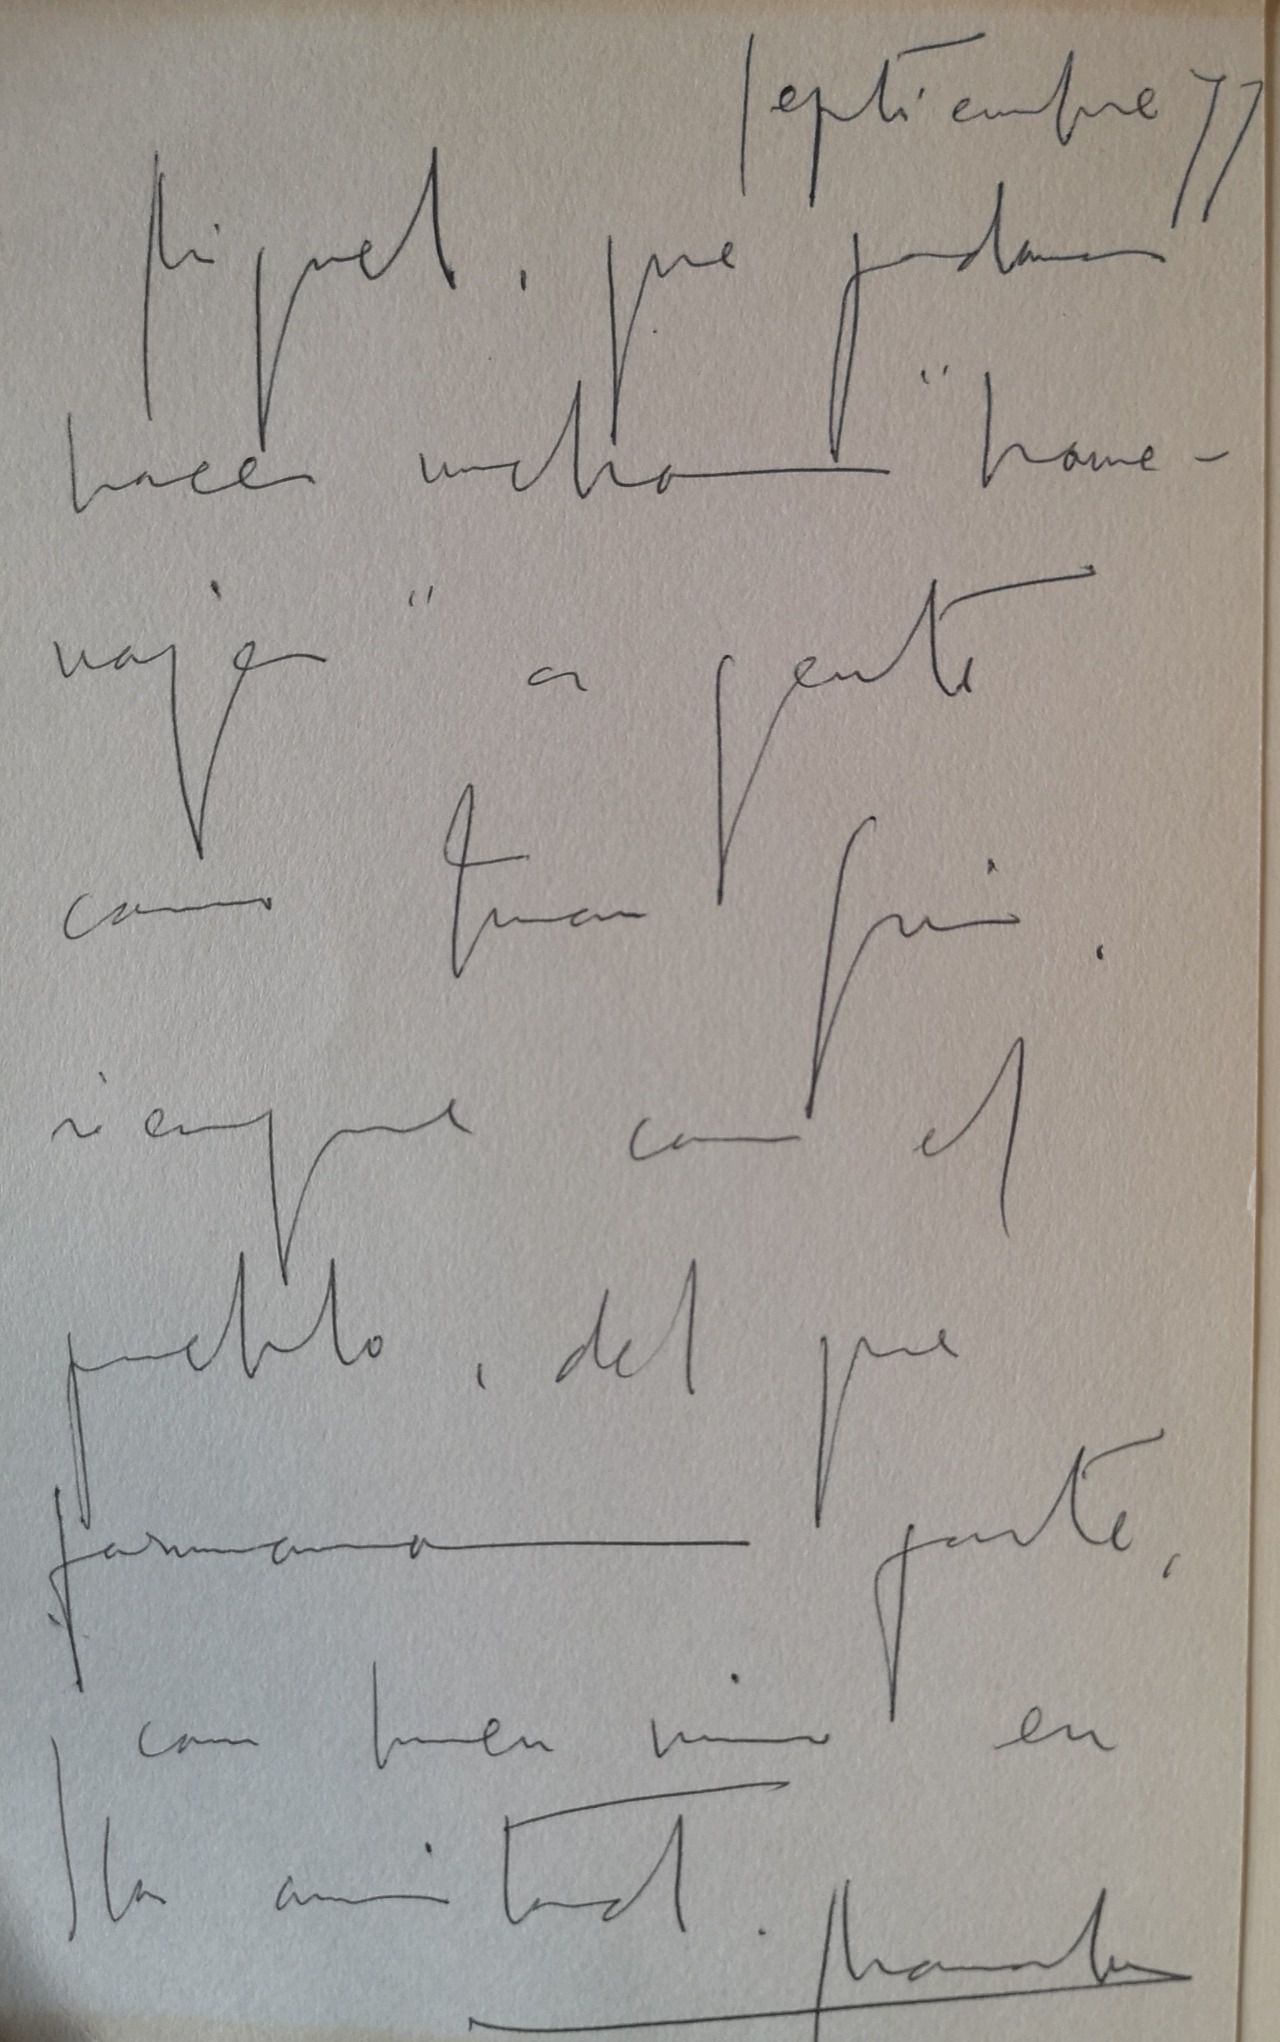 Septiembre 77
Miguel, que podamos
hacer muchos "home-
najes" a gente
como Juan Gris.
siempre con el
pueblo, del que
formamos parte,
y con buen vino en
la amistad.